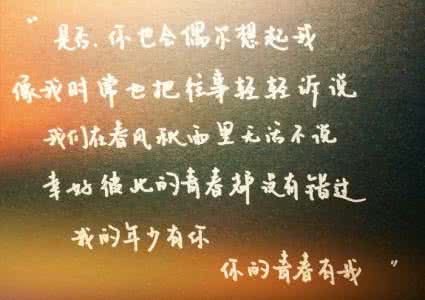 “是否,你也会偶尔想起我
像我时常也把往事轻轻诉说
我们在春风秋雨里无话不说
幸好彼此的青春都没有错过
我的年少有你
你的青春有我”